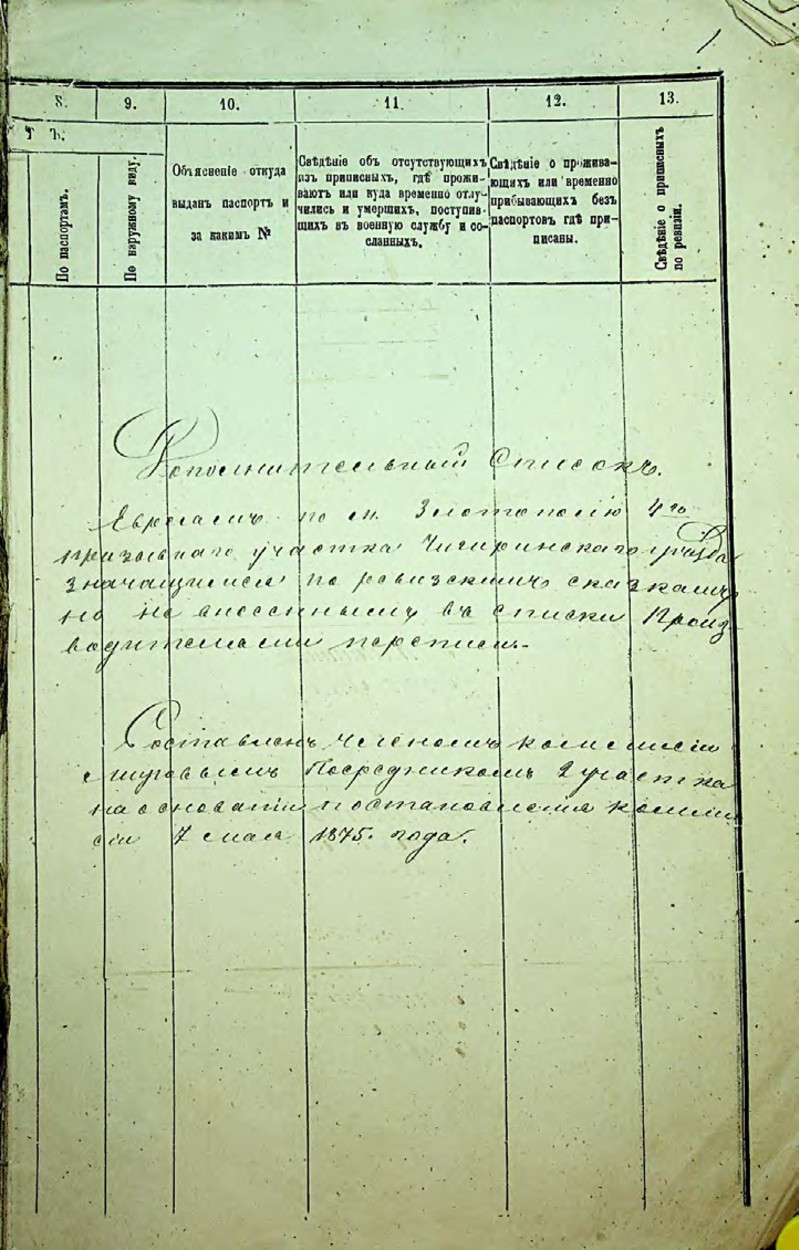 1
8.
9.
10.
11.
12.
13.
Т Ъ:
По паспортамъ.
По наружному виду.
Объясненіе откуда
выданъ паспортъ и
за какимъ №
Свѣдѣніе объ отсутствующихъ
изъ приписныхъ, гдѣ прожи-
ваютъ или куда временно отлу-
чились и умершихъ, поступив-
щихъ въ военную службу и со-
сланныхъ.
Свѣдѣніе о прожива-
ющихъ или временно
прибывающихъ безъ
паспортовъ гдѣ при-
писаны.
Свѣдѣніе о приписныхъ
по ревизіи.
Дополнительный Списокъ.
Евреямъ по м. Златополю 4го
призывнаго участка Чигиринскаго уѣзда
значущимся по ревизскимъ сказкамъ
но не внесеннымъ въ списки Произ
водителями переписи.
Составленъ членомъ комисіи
Мировымъ Посредникомъ 2 участка
на основаніи постановленія комми
сіи 7 мая 1875. года.